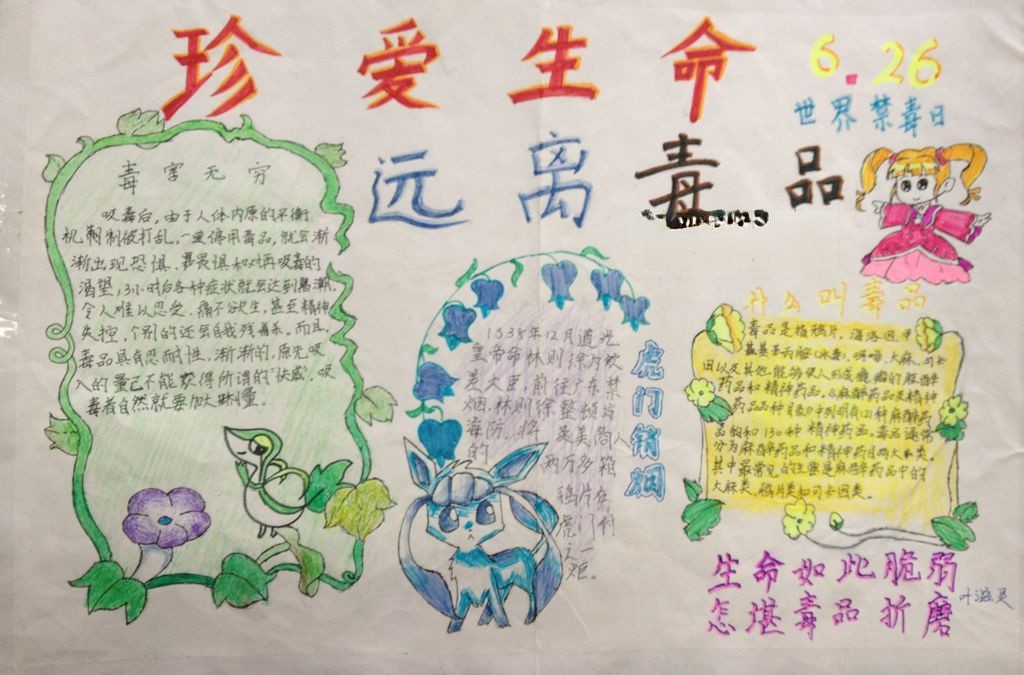 珍爱生命
6.26
世界禁毒日
远离毒品
毒害无穷
吸毒后,由于人体内原的平衡
机制被打乱,一旦停用毒品,就会渐
渐出现恐惧、畏惧和对再吸毒的
渴望,3小时后各种症状就会达到高潮,
令人难以忍受,痛不欲生,甚至精神
失控,个别的还会自我残害系。而且,
毒品具有忍耐性,渐渐的,原先吸
入的量已不能获得所谓的“快感”,吸
毒者自然就要加大剂量。
1838年12月道光
皇帝命林则徐为钦
差大臣,前往广东禁
烟。林则徐整顿
海防,将英美商人
的两万多箱
鸦片在
虎门付
之一
炬。
虎门销烟
什么叫毒品
毒品是指鸦片,海洛因,甲
基苯丙胺(冰毒),吗啡,大麻,可卡
因以及其他能够使人形成瘾癖的麻醉
药品和精神药品。《麻醉药品及精神
药品品种目录》中列明有121种麻醉药
品的和130种精神药品。毒品通常
分为麻醉药品和精神药品两大类。
其中最常见的主要是麻醉药品中的
大麻类,鸦片类和可卡因类。
生命如此脆弱
怎堪毒品折磨